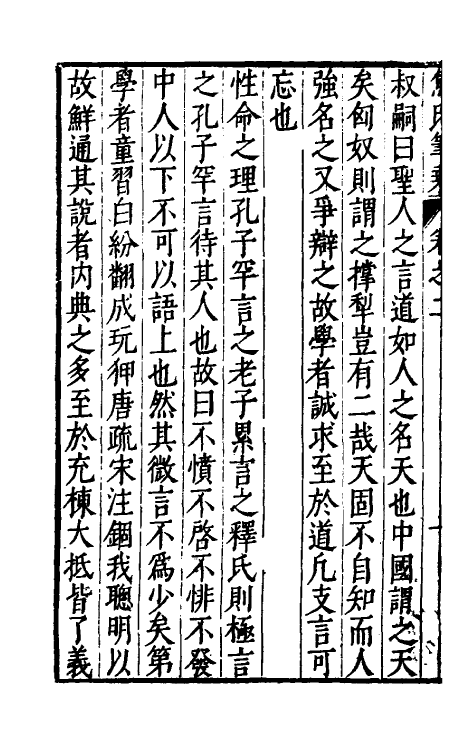 焦氏筆乗 卷之二
叔嗣曰聖人之言道如人之名天也中國謂之天
矣匈奴則謂之撑犁豈有二哉天固不自知而人
強名之又爭辯之故學者誠求至於道凡支言可
忘也
性命之理孔子罕言之老子累言之釋氏則極言
之孔子罕言待其人也故曰不憤不啓不悱不發
中人以下不可以語上也然其微言不爲少矣第
學者童習白紛翻成玩狎唐疏宋注錮我聰明以
故鮮通其說者内典之多至於充棟大抵皆了義